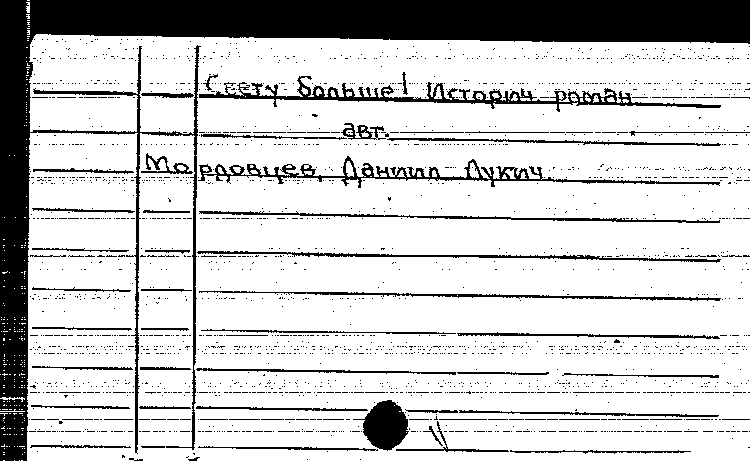 Свету больше! Историч. роман.
авт.
Мордовцев, Даниил Лукич.